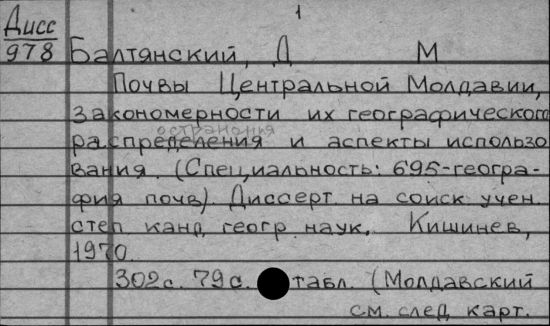 1
Дисс
978
Балтянский, Д М
Почвы Центральной Молдавии,
закономерности их географического
распределения и аспекты использо
вания. (Специальность: 695-геогра-
фия почв). Диссерт. на соиск учен.
степ канд геогр. наук. Кишинев,
1970.
302с. 79с. табл. (Молдавский
см. след карт.